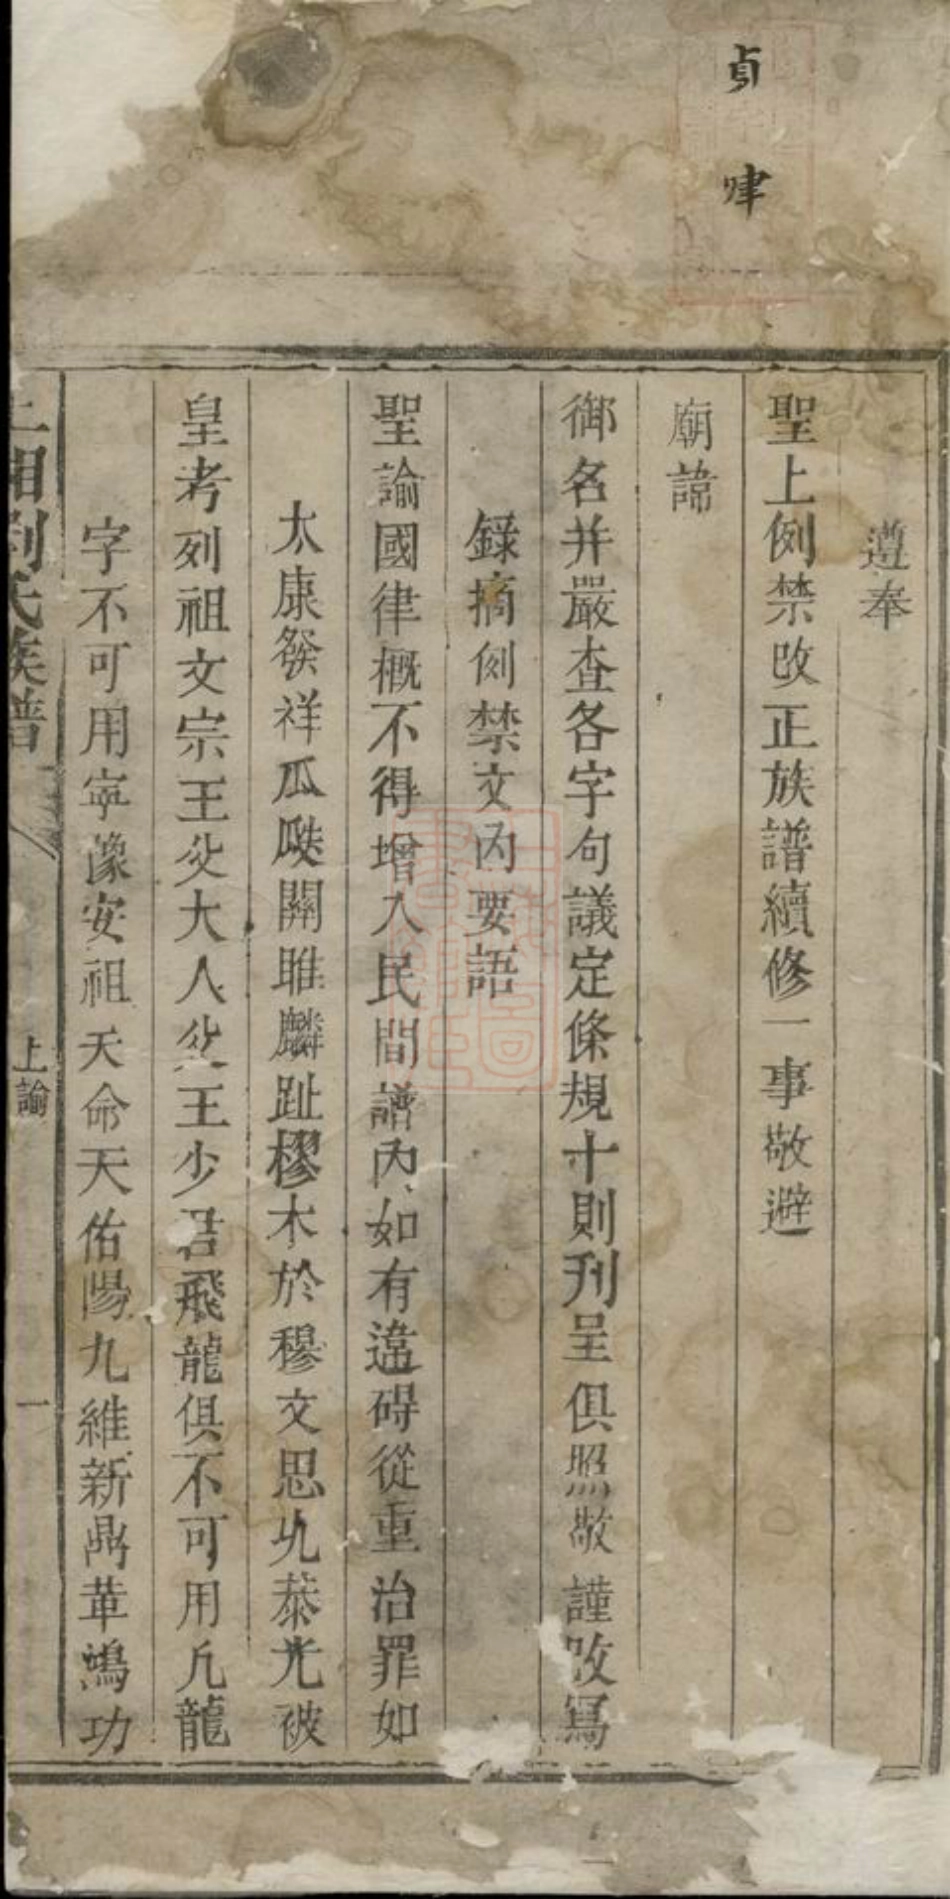 貞
遵奉
聖上例禁改正族譜續修一事敬避
廟諱
御名并嚴查各字句議定條規十則刊呈俱照敬謹改寫
錄摘例禁文內要語
聖諭國律概不得增入民間譜內如有違碍從重治罪如
太康發祥瓜瓞關雎麟趾樛木於穆文思允恭光被
皇考列祖文宗王父大人父王少君飛龍俱不可用凡龍
字不可用寧豫安祖天命天佑陽九維新鼎革鴻功
上湘劉氏族譜
上諭
一